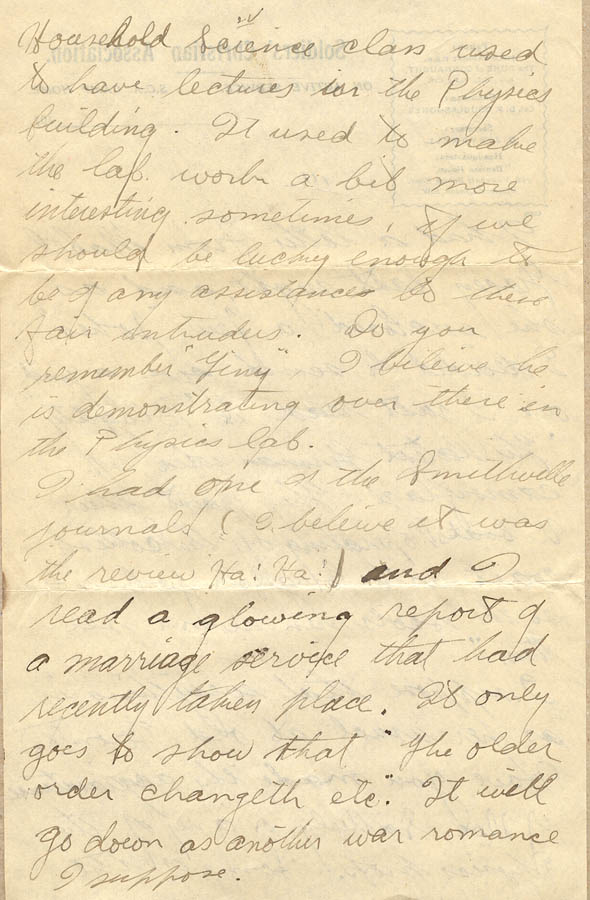 Household Science class used
to have lectures in the Physics
building. It used to make
the lab. work a bit more
interesting sometimes, if we
should be lucky enough to
be of any assistance to these
fair intruders. Do you
remember "Tiny" I beleive he
is demonstrating over there in
the Physics lab.
I had one of the Smithville
journals ( I beleive it was
the review Ha! Ha! ) and I
read a glowing report of
a marriage service that had
recently taken place. It only
goes to show that "The older
order changeth etc". It will
go down as another war romance
I suppose.